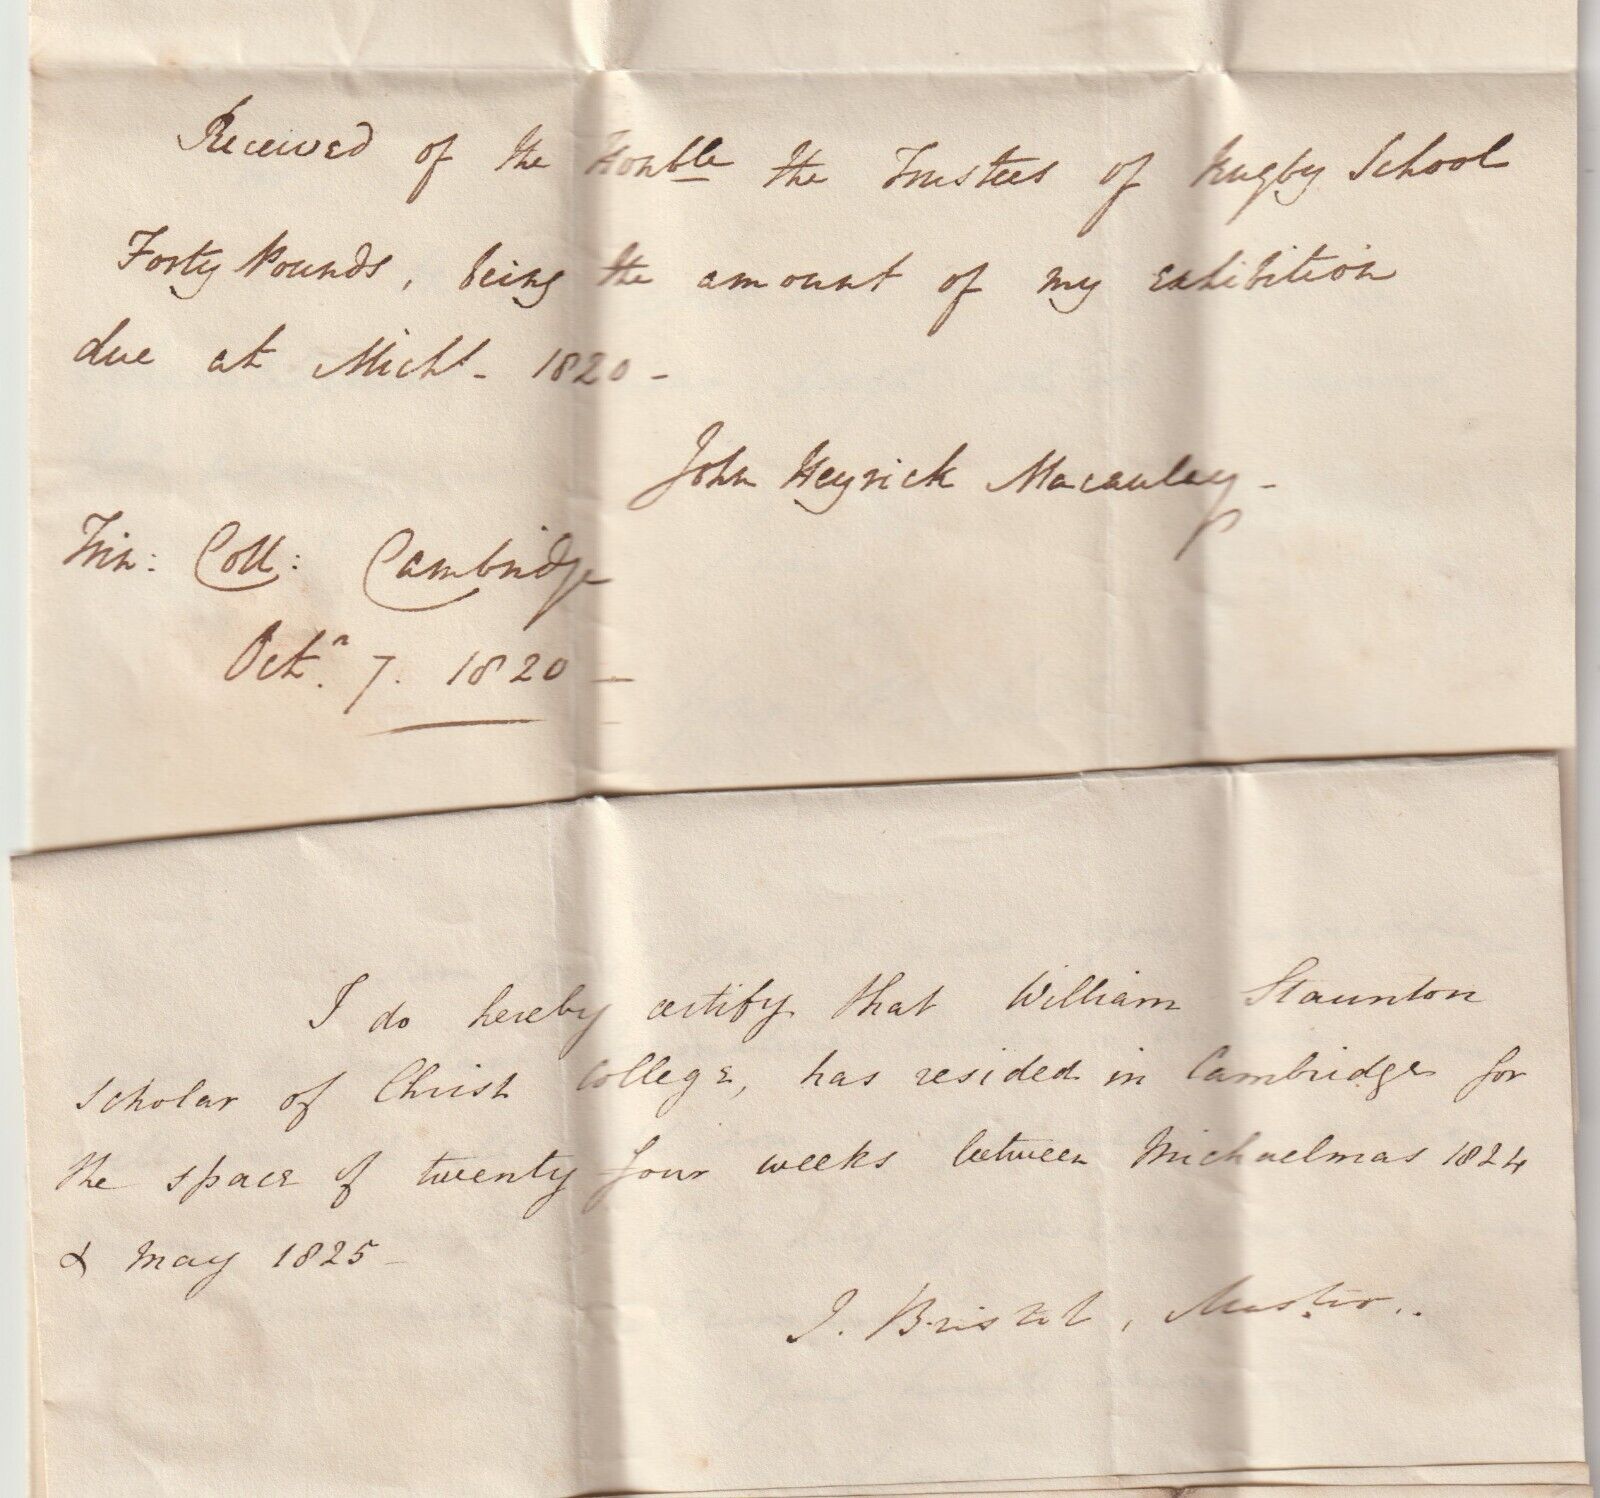 Received of the Honble the Trustees of Rugby School
Forty Pounds, being the amount of my exhibition
due at Michs - 1820 -
John Heyrick Macaulay -
Trin: Coll: Cambridge
Octr. 7. 1820 -
I do hereby certify that William Staunton
Scholar of Christ College, has resided in Cambridge for
the space of twenty four weeks between Michaelmas 1824
& May 1825 -
J. Bristol, Master..